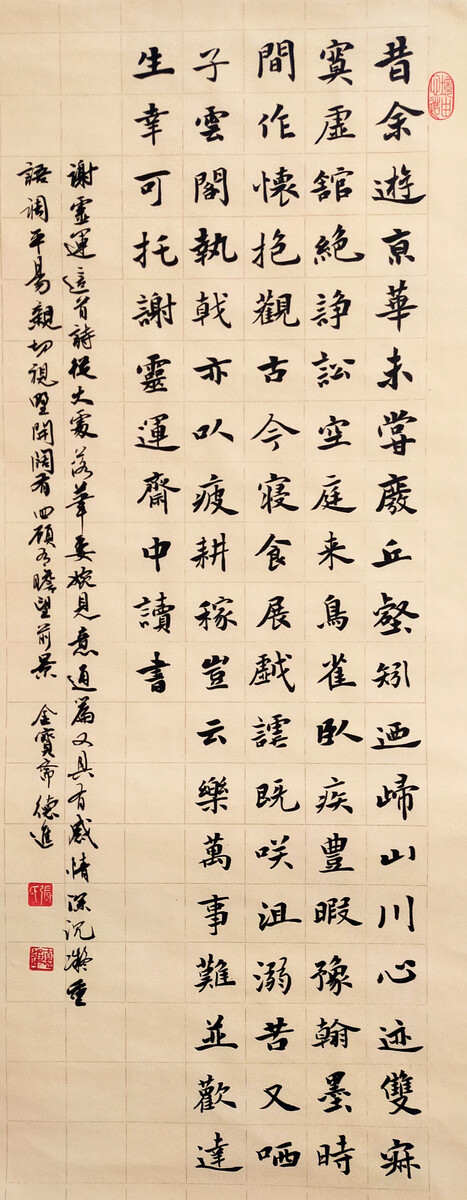 昔余遊亰華未甞廢丘壑矧迺歸山川心迹雙寂
寞虛舘絶諍訟空庭来鳥雀臥疾豊暇豫翰墨時
間作懷抱觀古今寝食展戱謔既咲沮溺苦又哂
子雲閣執戟亦以疲耕稼豈云樂萬事難並歡達
生幸可托謝靈運齋中讀書
謝靈運這首詩從大處落筆委婉見意通篇又具有感情深沉凝重
語調平易親切視野開闊有回顧有瞻望前景 金寶齋 德進